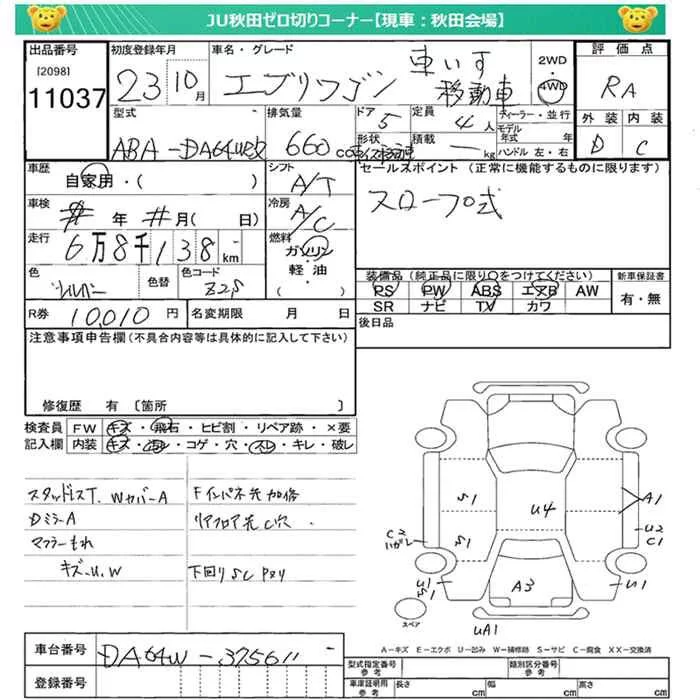 JU秋田ゼロ切りコーナー【現車：秋田会場】
出品番号 初度登録年月 車名・グレード 2WD 評価点
[2098] 11037 23 10月 エブリワゴン 車いす移動車 4WD RA
型式 排気量 ドア 定員 ディーラー・並行 外装 内装
ABA-DA64W改 660cc 5 4人 モデル年式 年 D C
形状 積載 kg ハンドル 左・右
車歴 シフト セールスポイント (正常に機能するものに限ります)
自家用・( ) A/T スロープ式
車検 年 月( 日) 冷房 A/C
走行 6万8千138km 燃料 ガソリン
軽・油
( )
色 シルバー 色替 色コード Z2S
装備品(純正品に限り○をつけてください) 新車保証書
PS PW ABS エアB AW 有・無
SR ナビ TV カワ
R券 10,010円 名変期限 月 日 後日品
注意事項申告欄(不具合内容等は具体的に記入して下さい)
修復歴 有 〔箇所 〕
検査員 FW キズ・飛石・ヒビ割・リペア跡・×要
記入欄 内装 キズ・汚レ・コゲ・穴・スレ・キレ・破レ
スタッドレスT. WカバーA Fインパネ先加修
DミラーA リアフロア先C穴.
マフラーもれ
キズ-U.W 下回りSC Pヌリ
S1 U4 A1
S1 C2 ハガレ U2 C1
U1 S1 A3 U1
スペア UA1
A－キズ E－エクボ U－凹み W－補修跡 S－サビ C－腐食 XX－交換済
車台番号 DA64W-375611
登録番号
型式指定番号 参考 類別区分番号 参考
車庫証明用 参考 長さ cm 幅 cm 高さ cm